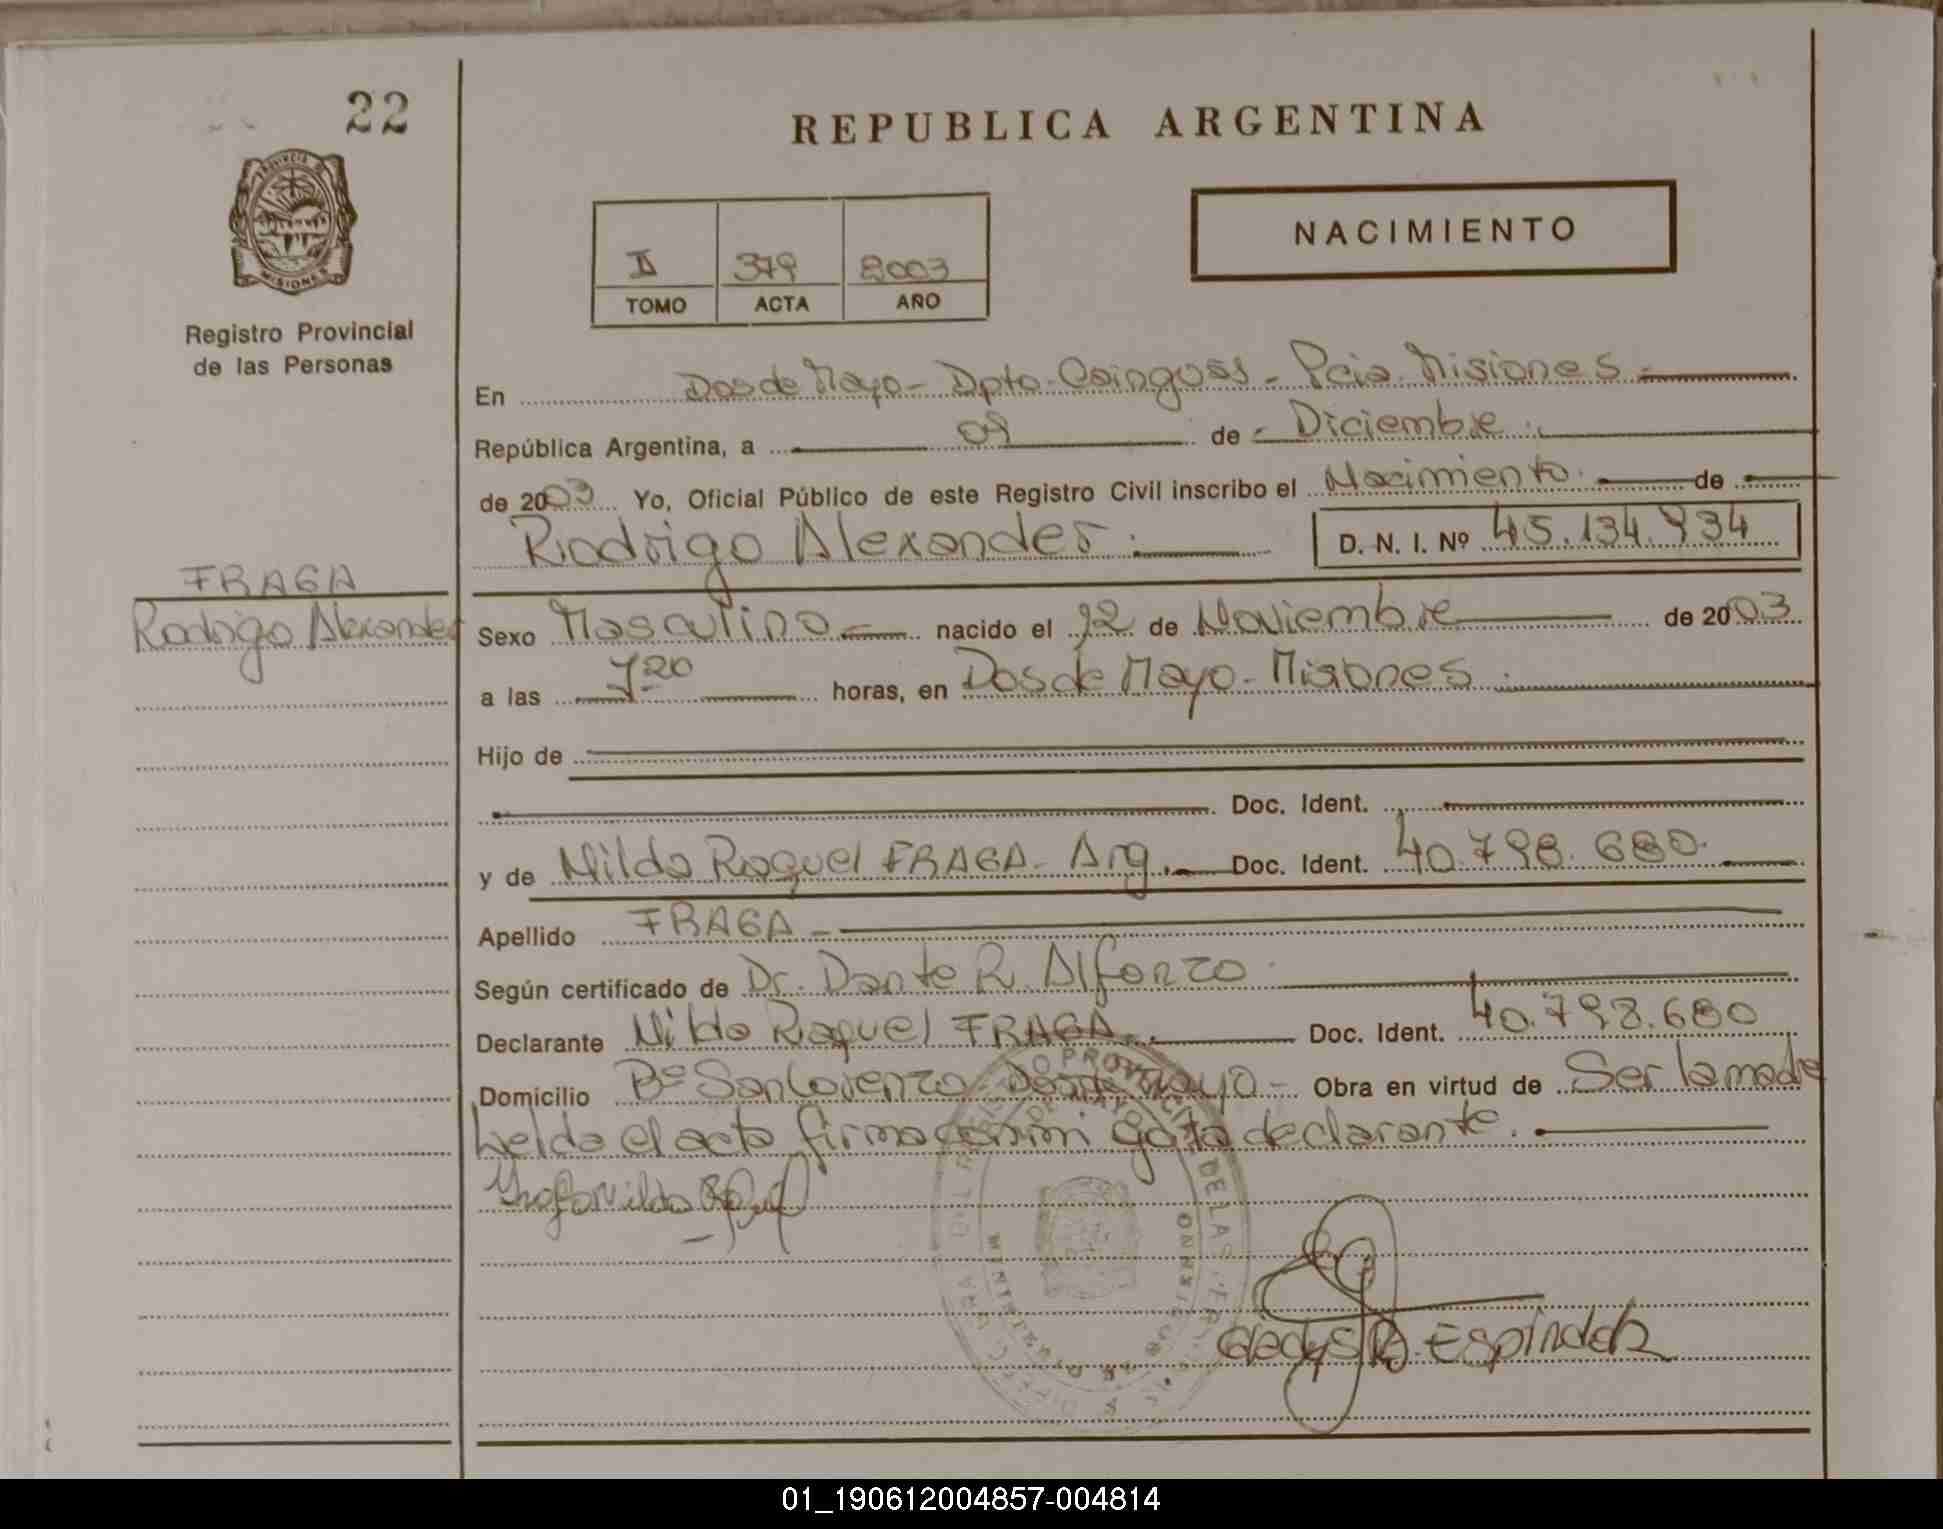 22
REPUBLICA ARGENTINA
PROVINCIA DE MISIONES
Registro Provincial
de las Personas
II 379 2003
TOMO ACTA AÑO
NACIMIENTO
En Dos de Mayo - Dpto. Cainguás - Pcia. Misiones.-
República Argentina, a 09 de - Diciembre.
de 2003 Yo, Oficial Público de este Registro Civil inscribo el Nacimiento. de
Rodrigo Alexander. D. N. I. Nº 45.134.934
FRAGA
Rodrigo Alexander
Sexo Masculino nacido el 22 de Noviembre de 2003
a las 7 20 horas, en Dos de Mayo - Misiones.
Hijo de
Doc. Ident.
y de Nilda Raquel FRAGA - Arg. Doc. Ident. 40.798.680.
Apellido FRAGA -
Según certificado de Dr. Dante R. Alfonzo.
Declarante Nilda Raquel FRAGA. Doc. Ident. 40.798.680
Domicilio Bº San Lorenzo - Dos de Mayo - Obra en virtud de Ser la madre
Leída el acta firma conmigo la declarante.
Gladys Espíndola
01_190612004857-004814